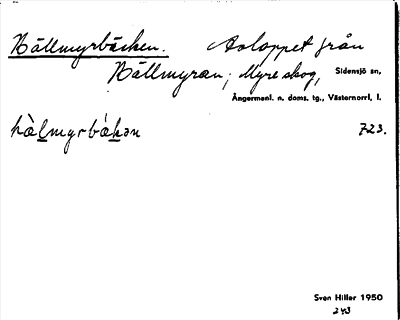 Hällmyrbäcken. Avloppet från
Hällmyran; Myre skog, Sidensjö sn,
Ångermanl. n. doms. tg., Västernorrl. l.
hä̀lmyrbákən 723.
Sven Hiller 1950
243